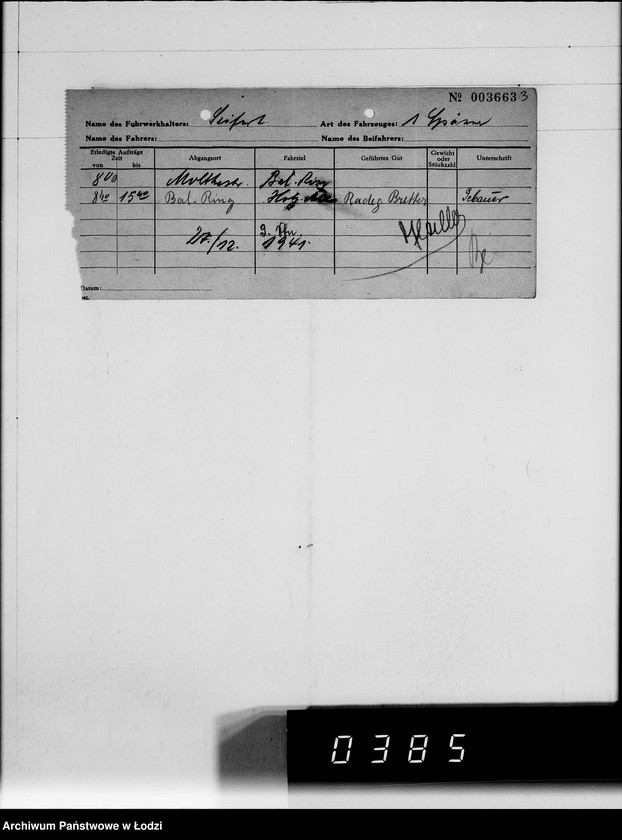 № 003663 3
Name des Fuhrwerkhalters: Seifert Art des Fahrzeuges: 1 Spänner
Name des Fahrers: Name des Beifahrers:
Erledigte Aufträge Zeit von bis Abgangsort Fahrziel Geführtes Gut Gewicht oder Stückzahl Unterschrift
8⁰⁰ Moltkestr. Bal. Ring
8¹⁰ 15⁴⁰ Bal. Ring Holz Bretter Gebauer
27./12. 1941.
Datum:
0385
Archiwum Państwowe w Łodzi